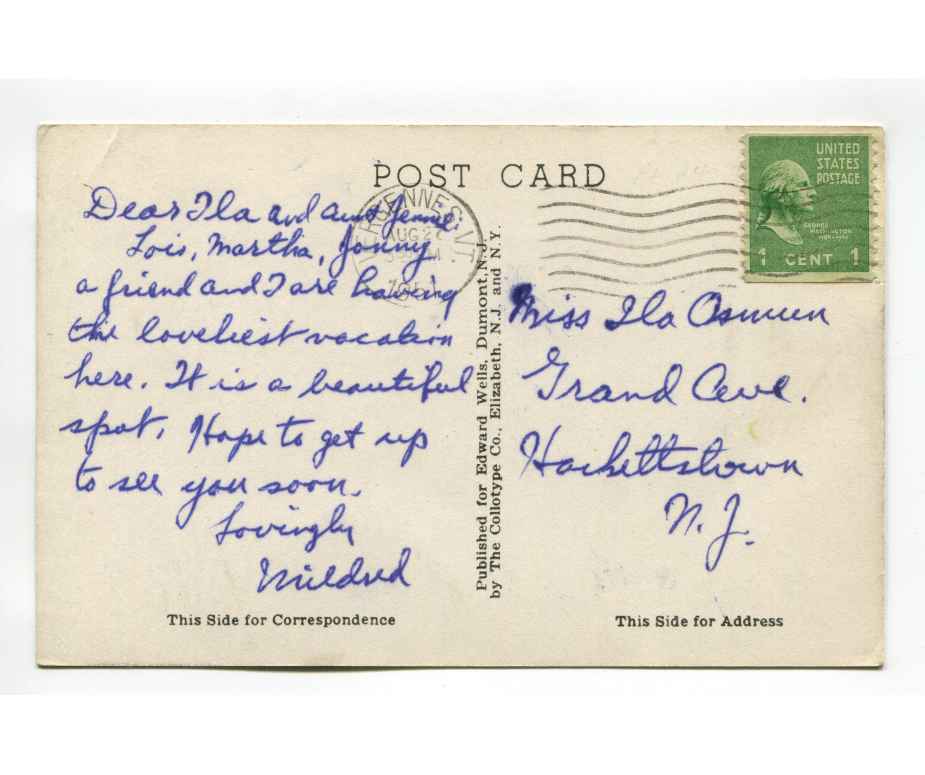 POST CARD
UNITED
STATES
POSTAGE
GEORGE
WASHINGTON
1 CENT 1
VERGENNES, VT.
AUG 27
Dear Ila and aunt Jennie,
Lois, Martha, Jonny
a friend and I are having
the loveliest vacation
here. It is a beautiful
spot. Hope to get up
to see you soon.
Lovingly
Mildred
This Side for Correspondence
Published for Edward Wells, Dumont, N.J.
by The Collotype Co., Elizabeth, N.J. and N.Y.
Miss Ila Osmun
Grand Ave.
Hackettstown
N. J.
This Side for Address